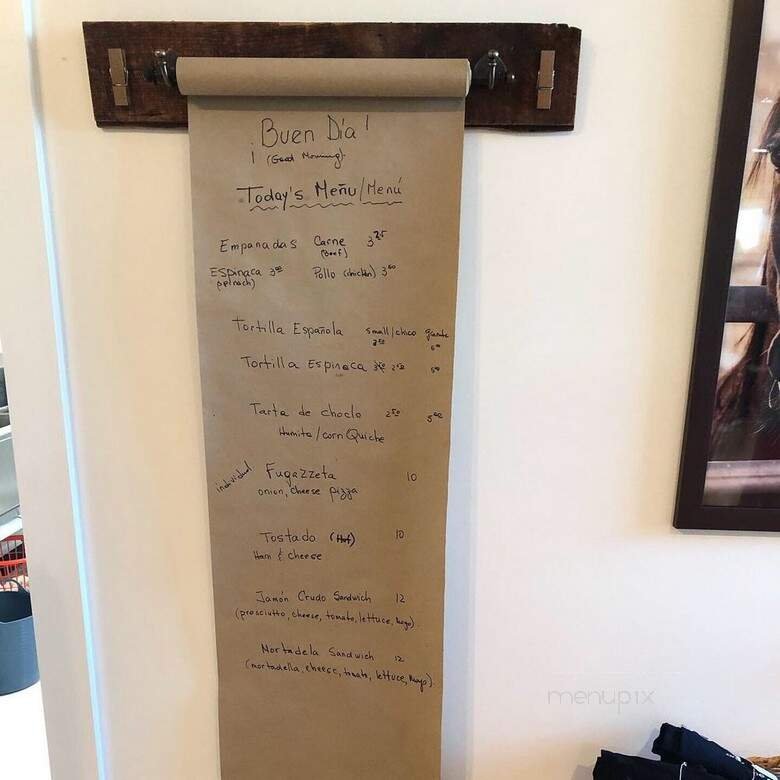 ¡Buen Día!
(Good Morning)
Today's Meñu/Menú
Empanadas Carne 3.25
(Beef)
Espinaca 3.00 Pollo (chicken) 3.00
(spinach)
Tortilla Española small/chico grande
2.50 5.00
Tortilla Espinaca 2.50 5.00
Tarta de choclo 2.50 5.00
Humita/corn Quiche
individual Fugazzeta 10
onion, cheese pizza
Tostado (Hot) 10
Ham & cheese
Jamón Crudo Sandwich 12
(prosciutto, cheese, tomato, lettuce, mayo)
Mortadela Sandwich 12
(mortadella, cheese, tomato, lettuce, mayo)
menupix